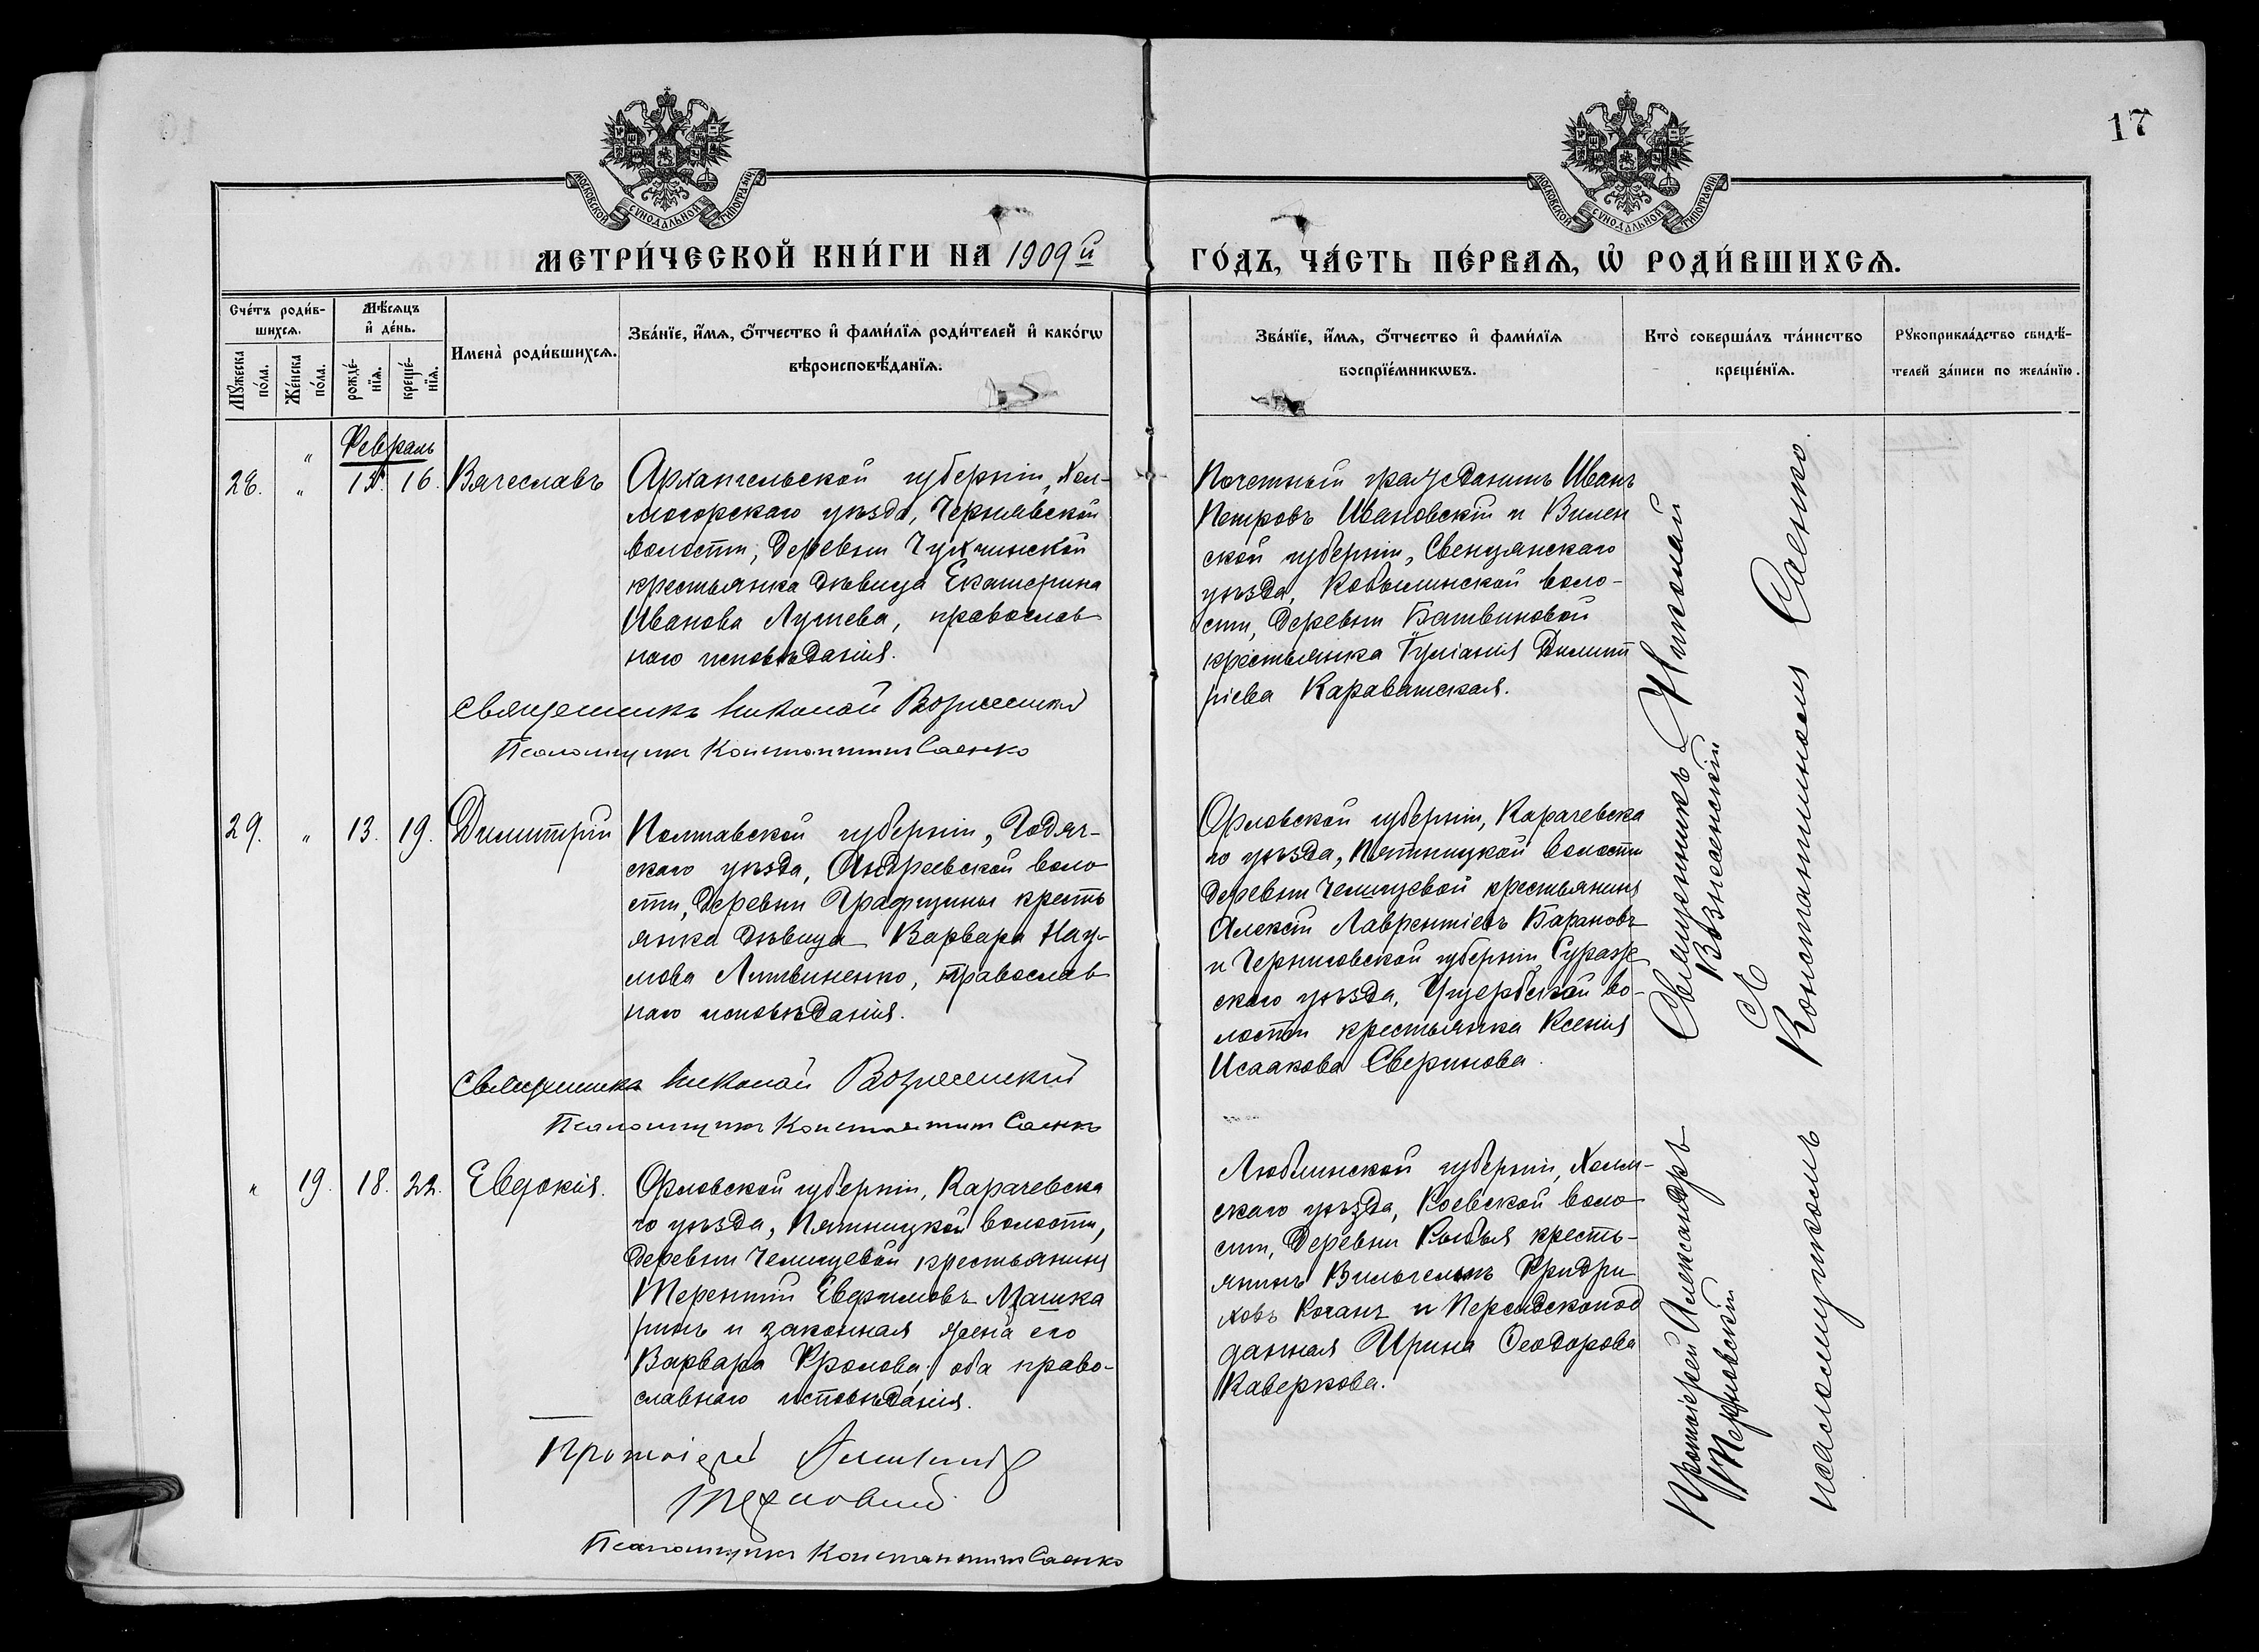 17
МОСКОВСКОЙ СѴНОДАЛЬНОЙ ТИПОГРАФІИ
МОСКОВСКОЙ СѴНОДАЛЬНОЙ ТИПОГРАФІИ
МЕТРИ́ЧЕСКОЙ КНИ́ГИ НА 1909й
ГО́ДЪ, ЧА́СТЬ ПЕ́РВАѦ, Ѡ҆ РОДИ́ВШИХСѦ.
Сче́тъ роди́в-
шихсѧ.
Мѣ́сѧцъ
и҆ де́нь.
Мꙋ́жеска
по́ла.
Же́нска
по́ла.
рожде́-
нїѧ.
креще́-
нїѧ.
Имена̀ роди́вшихсѧ.
Зва́нїе, и҆́мѧ, ѻ҆́тчество и҆ фами́лїѧ роди́телей и҆ како́гѡ
вѣроисповѣ́данїѧ.
Зва́нїе, и҆́мѧ, ѻ҆́тчество и҆ фами́лїѧ
воспрїе́мникѡвъ.
Кто̀ соверша́лъ та́инство
креще́нїѧ.
Рꙋкоприкла́дство свидѣ́-
телей за́писи по жела́нїю.
Февраль
28. " 16. Вячеславъ
Архангельской губерніи, Хол-
могорскаго уѣзда,
волости, деревни Чухчинской
крестьянка дѣвица Екатерина
Иванова православ
наго исповѣданія.
Священникъ Николай Вознесенскій
Псаломщикъ Константинъ Саенко
Почетный гражданинъ Иванъ
Петровъ Ивановскій и Вилен
ской губерніи, Свенцянскаго
уѣзда, Кобылинской воло-
сти, деревни Батвиновой
крестьянка Іуліанія Димит
ріева
29. " 13. 19. Димитрій
Полтавской губерніи, Гадяч-
скаго уѣзда, Андреевской воло
сти, деревни Графщины кресть
янка дѣвица Варвара Нау-
мова Литвиненко, православ
наго исповѣданія.
Священникъ Николай Вознесенскій
Псаломщикъ Константинъ Саенко
Орловской губерніи, Карачевска
го уѣзда, Пятницкой волости
деревни Челищевой крестьянинъ
Алексій Лаврентіевъ Барановъ
и Черниговской губерніи Сураж
скаго уѣзда, Ущербской во-
лости крестьянка Ксенія
Исаакова Сверинова.
" 19. 18. 22. Евдокія.
Орловской губерніи, Карачевска
го уѣзда, Пятницкой волости,
деревни Челищевой крестьянинъ
Терентій Евфимовъ Машка
ринъ и законная жена его
Варвара Фролова, оба право-
славнаго исповѣданія.
Протоіерей Александръ
Терновскій
Псаломщикъ Константинъ Саенко
Люблинской губерніи, Холм-
скаго уѣзда, воло
сти, деревни кресть-
янинъ Вильгельмъ Фридри
ховъ и Персидскопод
данная Ирина Ѳеодорова
Каверкова.
Священникъ Николай
Вознесенскій
съ
Константиномъ Саенко.
Протоіерей Александръ
Терновскій
псаломщикомъ